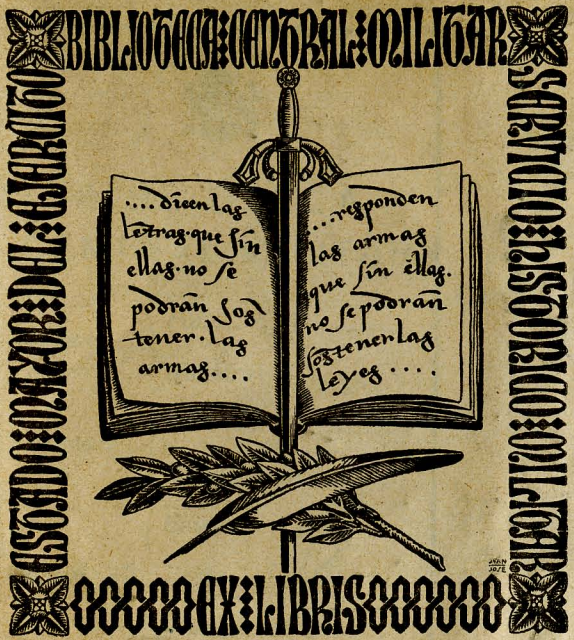 BIBLIOTECA CENTRAL MILITAR
SERVICIO HISTORICO MILITAR
ESTADO MAYOR DEL EJERCITO
....dicen las
letras·que sin
ellas·no se
podrań sos
tener·las
armas....
...responden
las armas
que sin ellas·
no se podrań
sostener las
leyes ....
JUAN
JOSE
EX LIBRIS